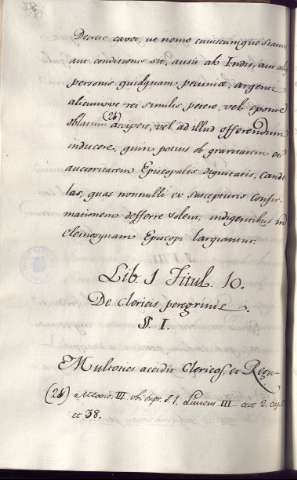 Decreti cavet, ut nemo cuiuscumque status
aut conditionis sit, ausit ab Indis, aut alia
persona quidquam pecuniæ, argenti
aliusmove rei similis petere, vel sponte
oblatum (24) accipere, vel ad illud offerendum
inducere, quin potius ob gravitatem et
auctoritatem Episcopalis dignitatis, cande
las, quas nonnulli ex susceptione Confir
mationem deferre solent, indigentibus in
eleemosynam Episcopi largiantur.
Lib. 1 Titul. 10.
De Clericis peregrinis.
§. I.
Multoties accidit Clericos, et Regu
(24) Mexic. III. ubi supr. § 1. Limens III. act. 2. cap.
et 38.